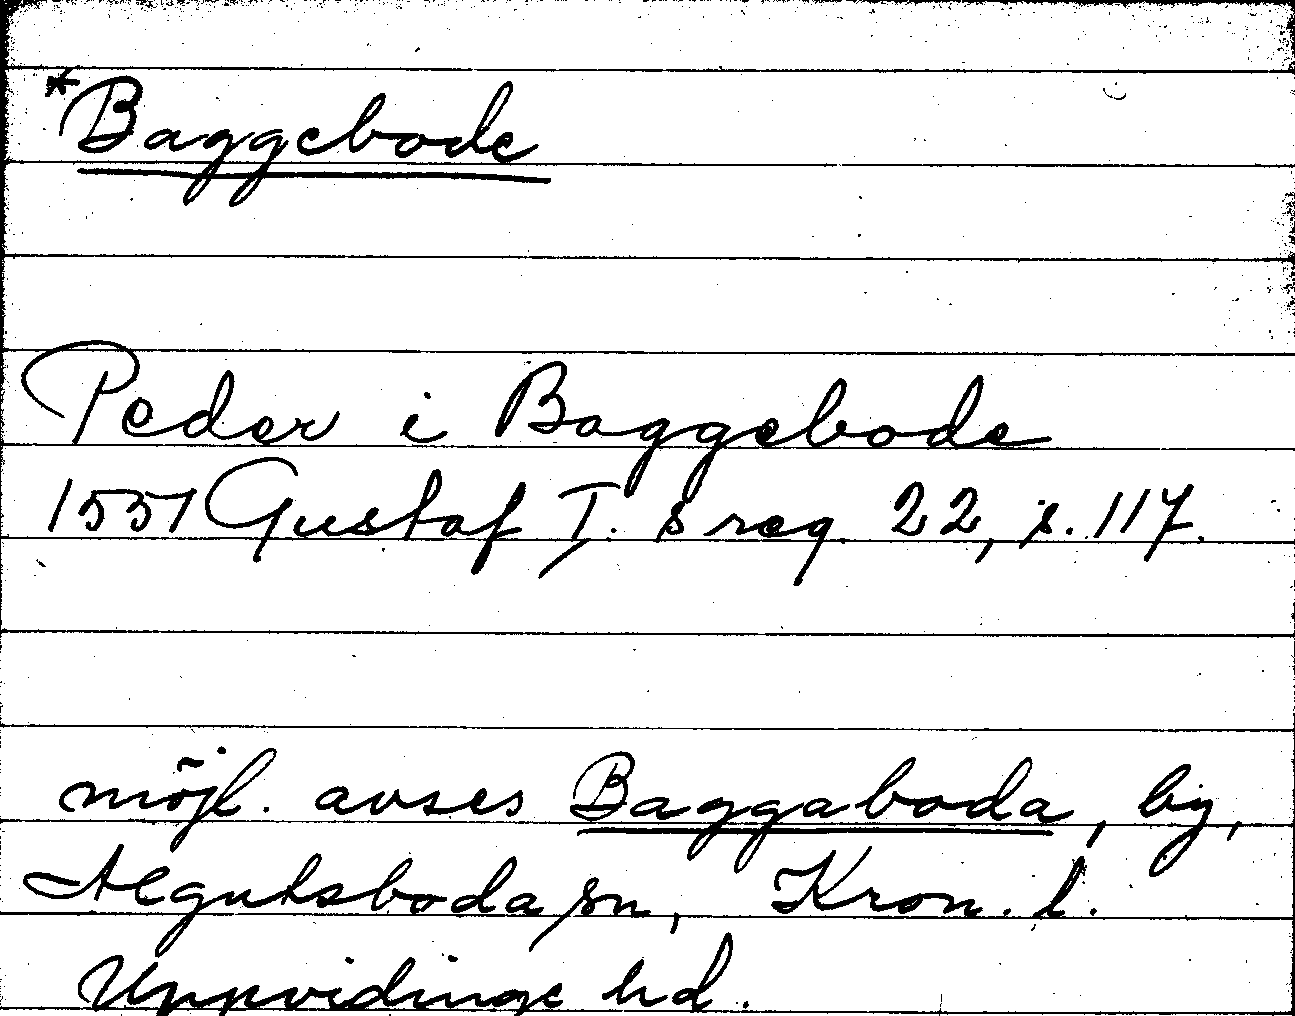 *Baggebode
Peder i Baggebode
1557 Gustaf I. s reg. 22, s. 117.
möjl. avses Baggaboda, by,
Algutsboda sn, Kron. l.
Uppvidinge hd.